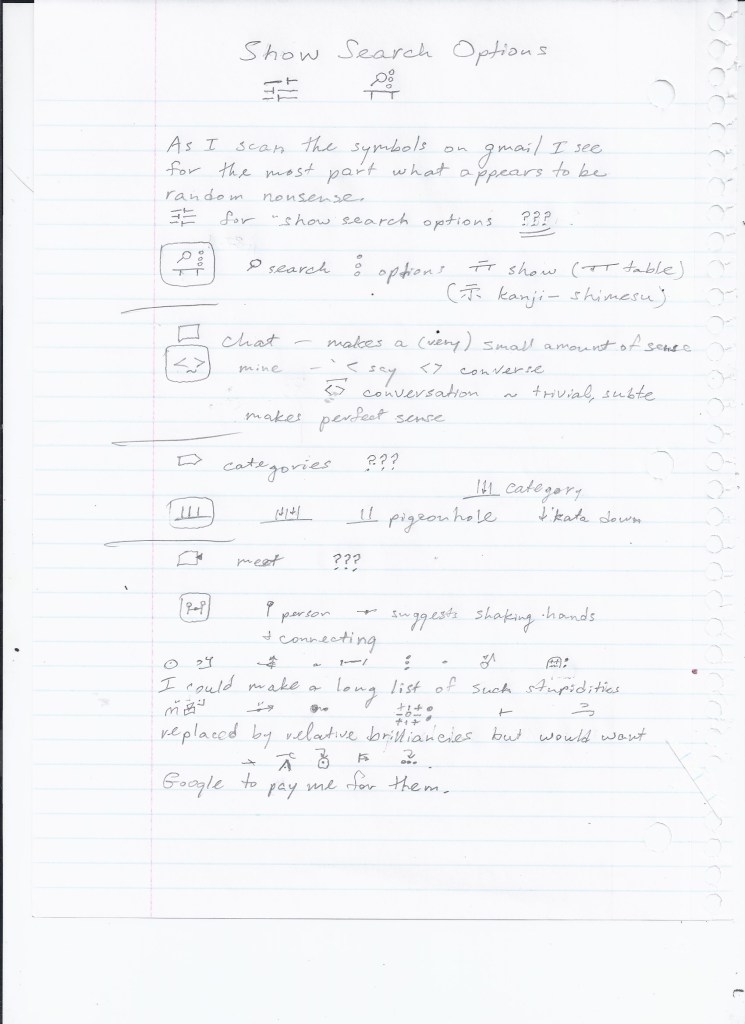 Show Search Options
As I scan the symbols on gmail I see
for the most part what appears to be
random nonsense.
for "show search options ???.
search options show (table)
(示 kanji - shimesu)
chat - makes a (very) small amount of sense
mine - < say <> converse
<> conversation ~ trivial, subte
makes perfect sense
categories ???
category
pigeonhole kata down
meet ???
person → suggests shaking hands
+ connecting
I could make a long list of such stupidities
replaced by relative brilliancies but would want
Google to pay me for them.